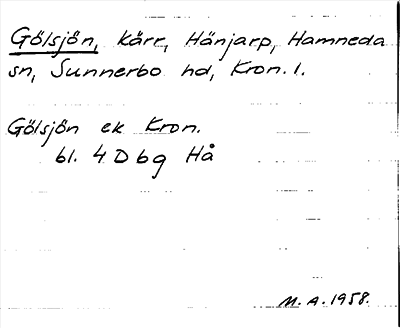 Gölsjön, kärr, Hänjarp, Hamneda
sn, Sunnerbo hd, Kron. l.
Gölsjön ek Kron.
bl. 4 D bg Hå
M. A. 1958.